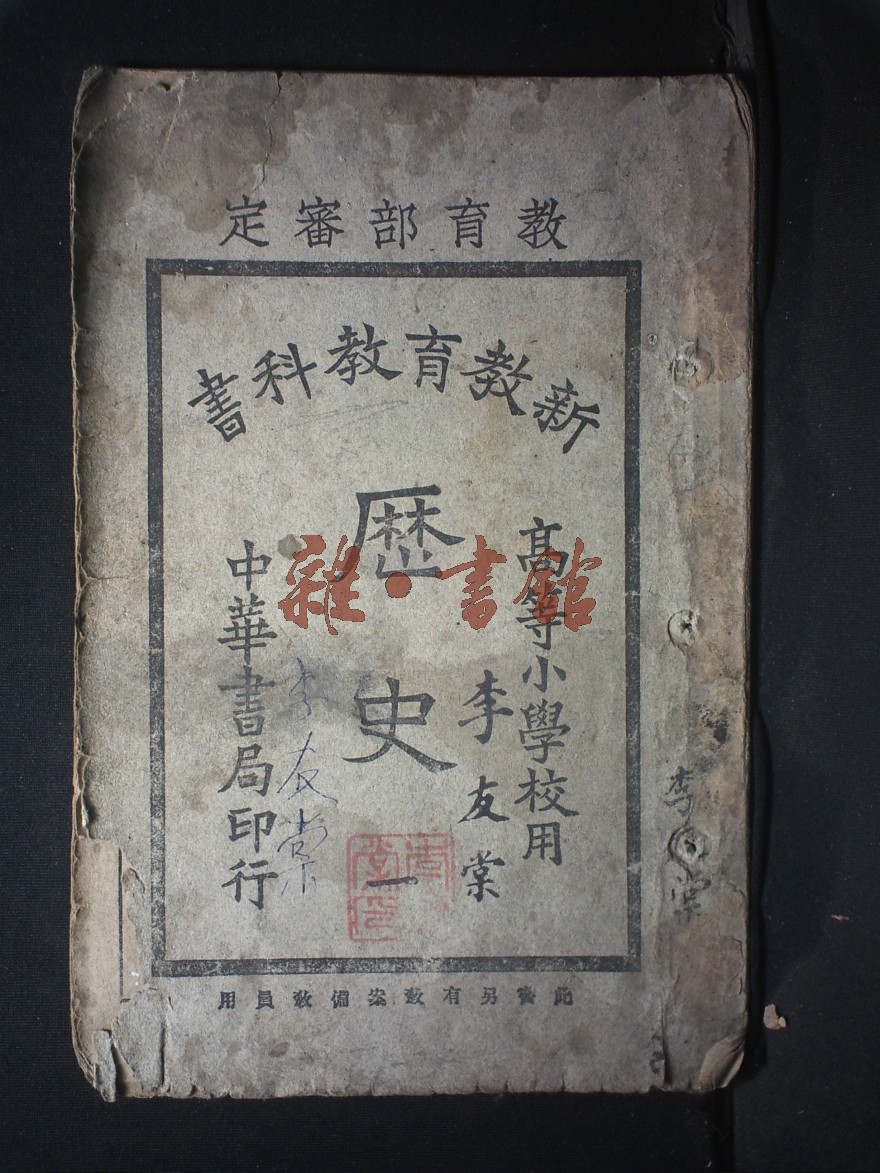 教育部審定
新教育教科書
高等小學校用
李友棠
歷史
一
中華書局印行
李友棠
此書另有教案備教員用
李 棠
雜·書館